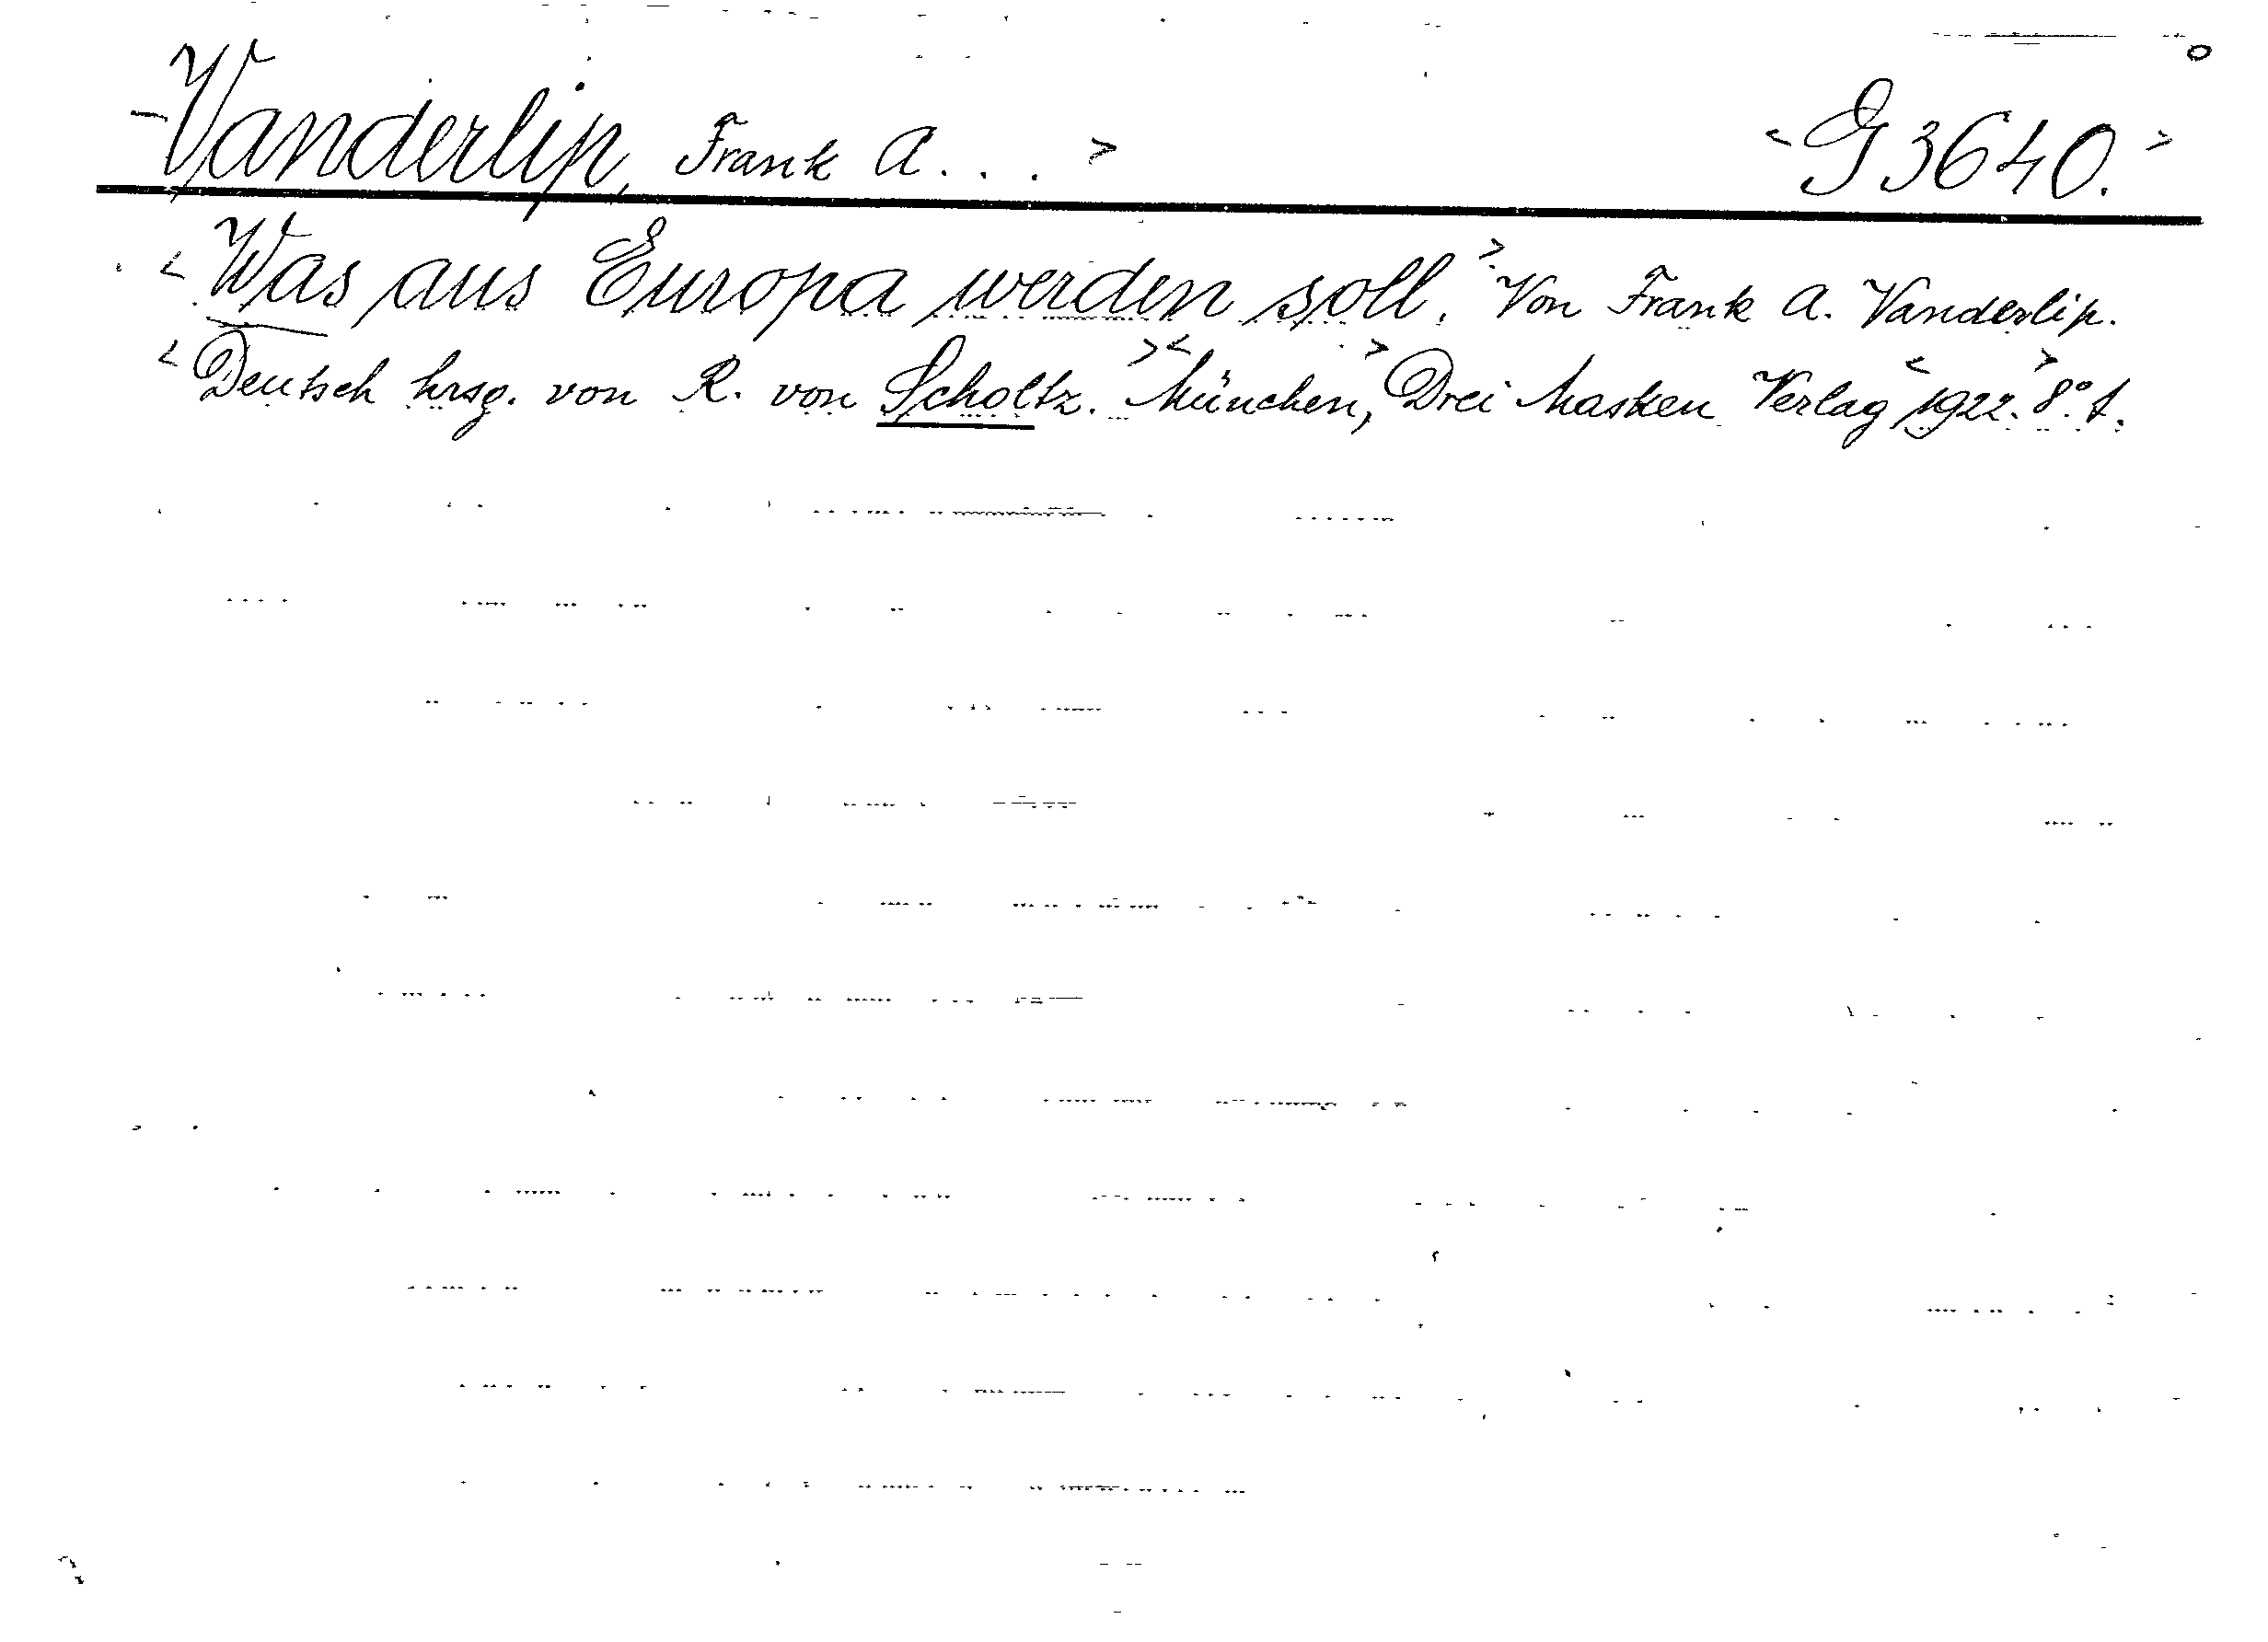 -Vanderlip, Frank A. . . > <G 3640.>
<Was aus Europa werden soll.> Von Frank A. Vanderlip.
<Deutsch hrsg. von R. von Scholtz.> <München,> Drei Masken Verlag <1922.> 8°.